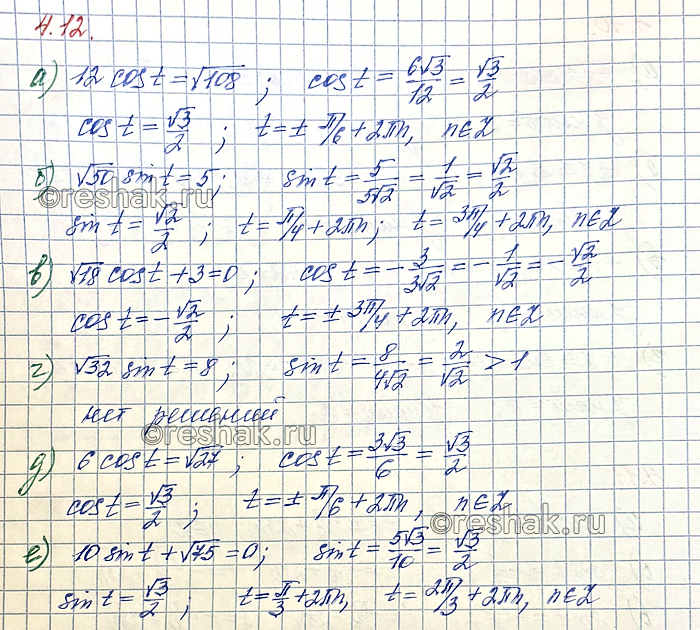 4.12.
а) 12 cos t = √108 ; cos t = 6√3/12 = √3/2
cos t = √3/2 ; t = ± π/6 + 2πn, n∈Z
б) √50 sin t = 5 ; sin t = 5/5√2 = 1/√2 = √2/2
reshak.ru
sin t = √2/2 ; t = π/4 + 2πn ; t = 3π/4 + 2πn, n∈Z
в) √18 cos t + 3 = 0 ; cos t = - 3/3√2 = - 1/√2 = - √2/2
cos t = - √2/2 ; t = ± 3π/4 + 2πn, n∈Z
г) √32 sin t = 8 ; sin t = 8/4√2 = 2/√2 > 1
нет решений
reshak.ru
д) 6 cos t = √27 ; cos t = 3√3/6 = √3/2
cos t = √3/2 ; t = ± π/6 + 2πn, n∈Z
reshak.ru
е) 10 sin t + √75 = 0 ; sin t = 5√3/10 = √3/2
sin t = √3/2 , t = π/3 + 2πn, t = 2π/3 + 2πn, n∈Z